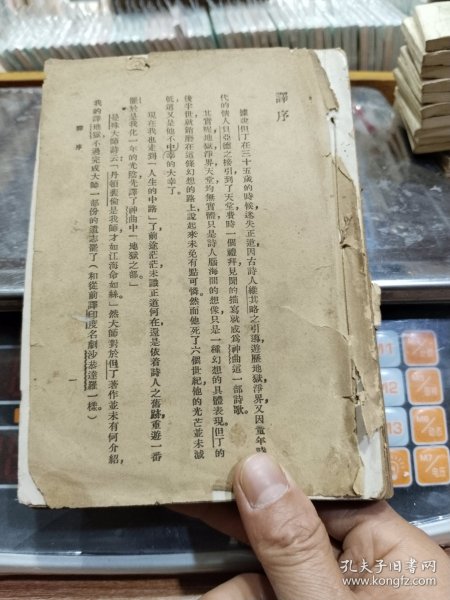 譯序
據說但丁在三十五歲的時候，迷失正道，因古詩人維其略之引導，遊歷地獄，淨界，又因童年時
代的情人貝亞德之接引到了天堂，費時一個禮拜，見聞的描寫就成爲神曲這一部詩歌。
其實呢，地獄淨界天堂均無實體，只是詩人腦海間的想像，只是一種幻想的具體表現。但丁的
後半世就銷磨在這條幻想的路上，說起來未免有點可憐。然而他死了六個世紀，他的光芒並未減
低，這又是他不幸的大幸了。
現在我也走到「人生的中路」了，前途茫茫，未識正道何在，還是依着詩人之舊跡，重遊一番
罷，於是我化一年的光陰，先譯了神曲中「地獄之部。」
曼殊大師詩云：「丹頓裴倫是我師，才如江海命如絲。」然大師對於但丁著作並未有何介紹，
我的譯地獄，不過完成大師一部份的遺志罷了（和從前譯印度名劇沙恭達羅一樣。）
譯序
一
孔夫子旧书网
www.kongfz.com
M3
M7/